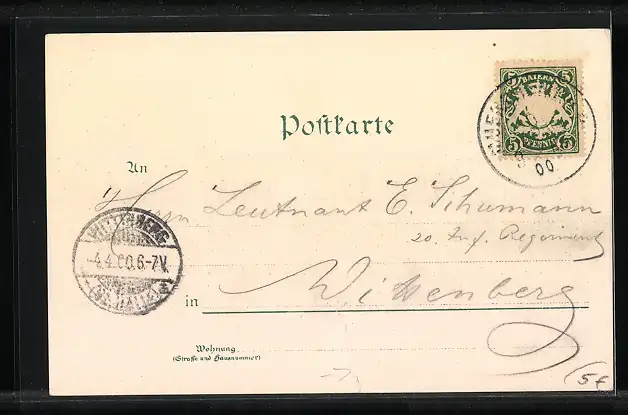 Postkarte
5 BAYERN 5
5 PFENNIG 5
00
An
Herrn Leutnant E. Schumann
20. Inf. Regiment
WITTENBERG
4.4.00.6-7V.
in Wittenberg
Wohnung
(Straße und Hausnummer)
5f